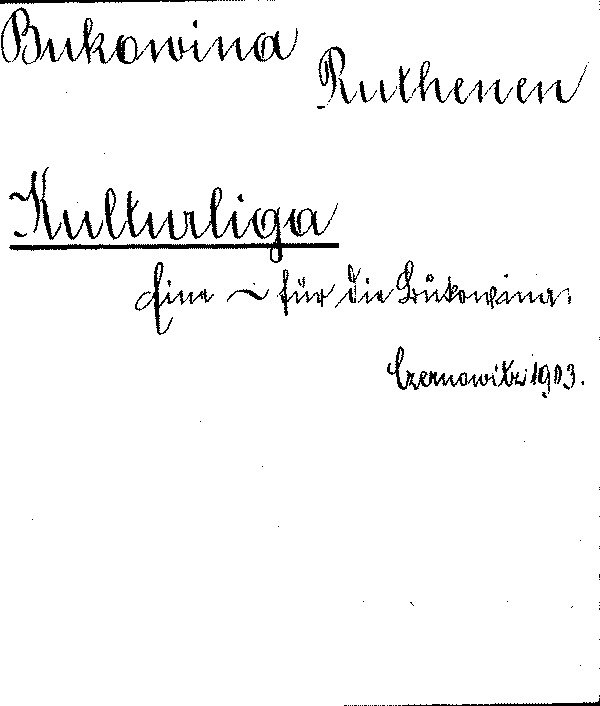 Bukowina
Ruthenen
Kulturliga
Eine ~ für die Bukowina.
Czernowitz 1903.